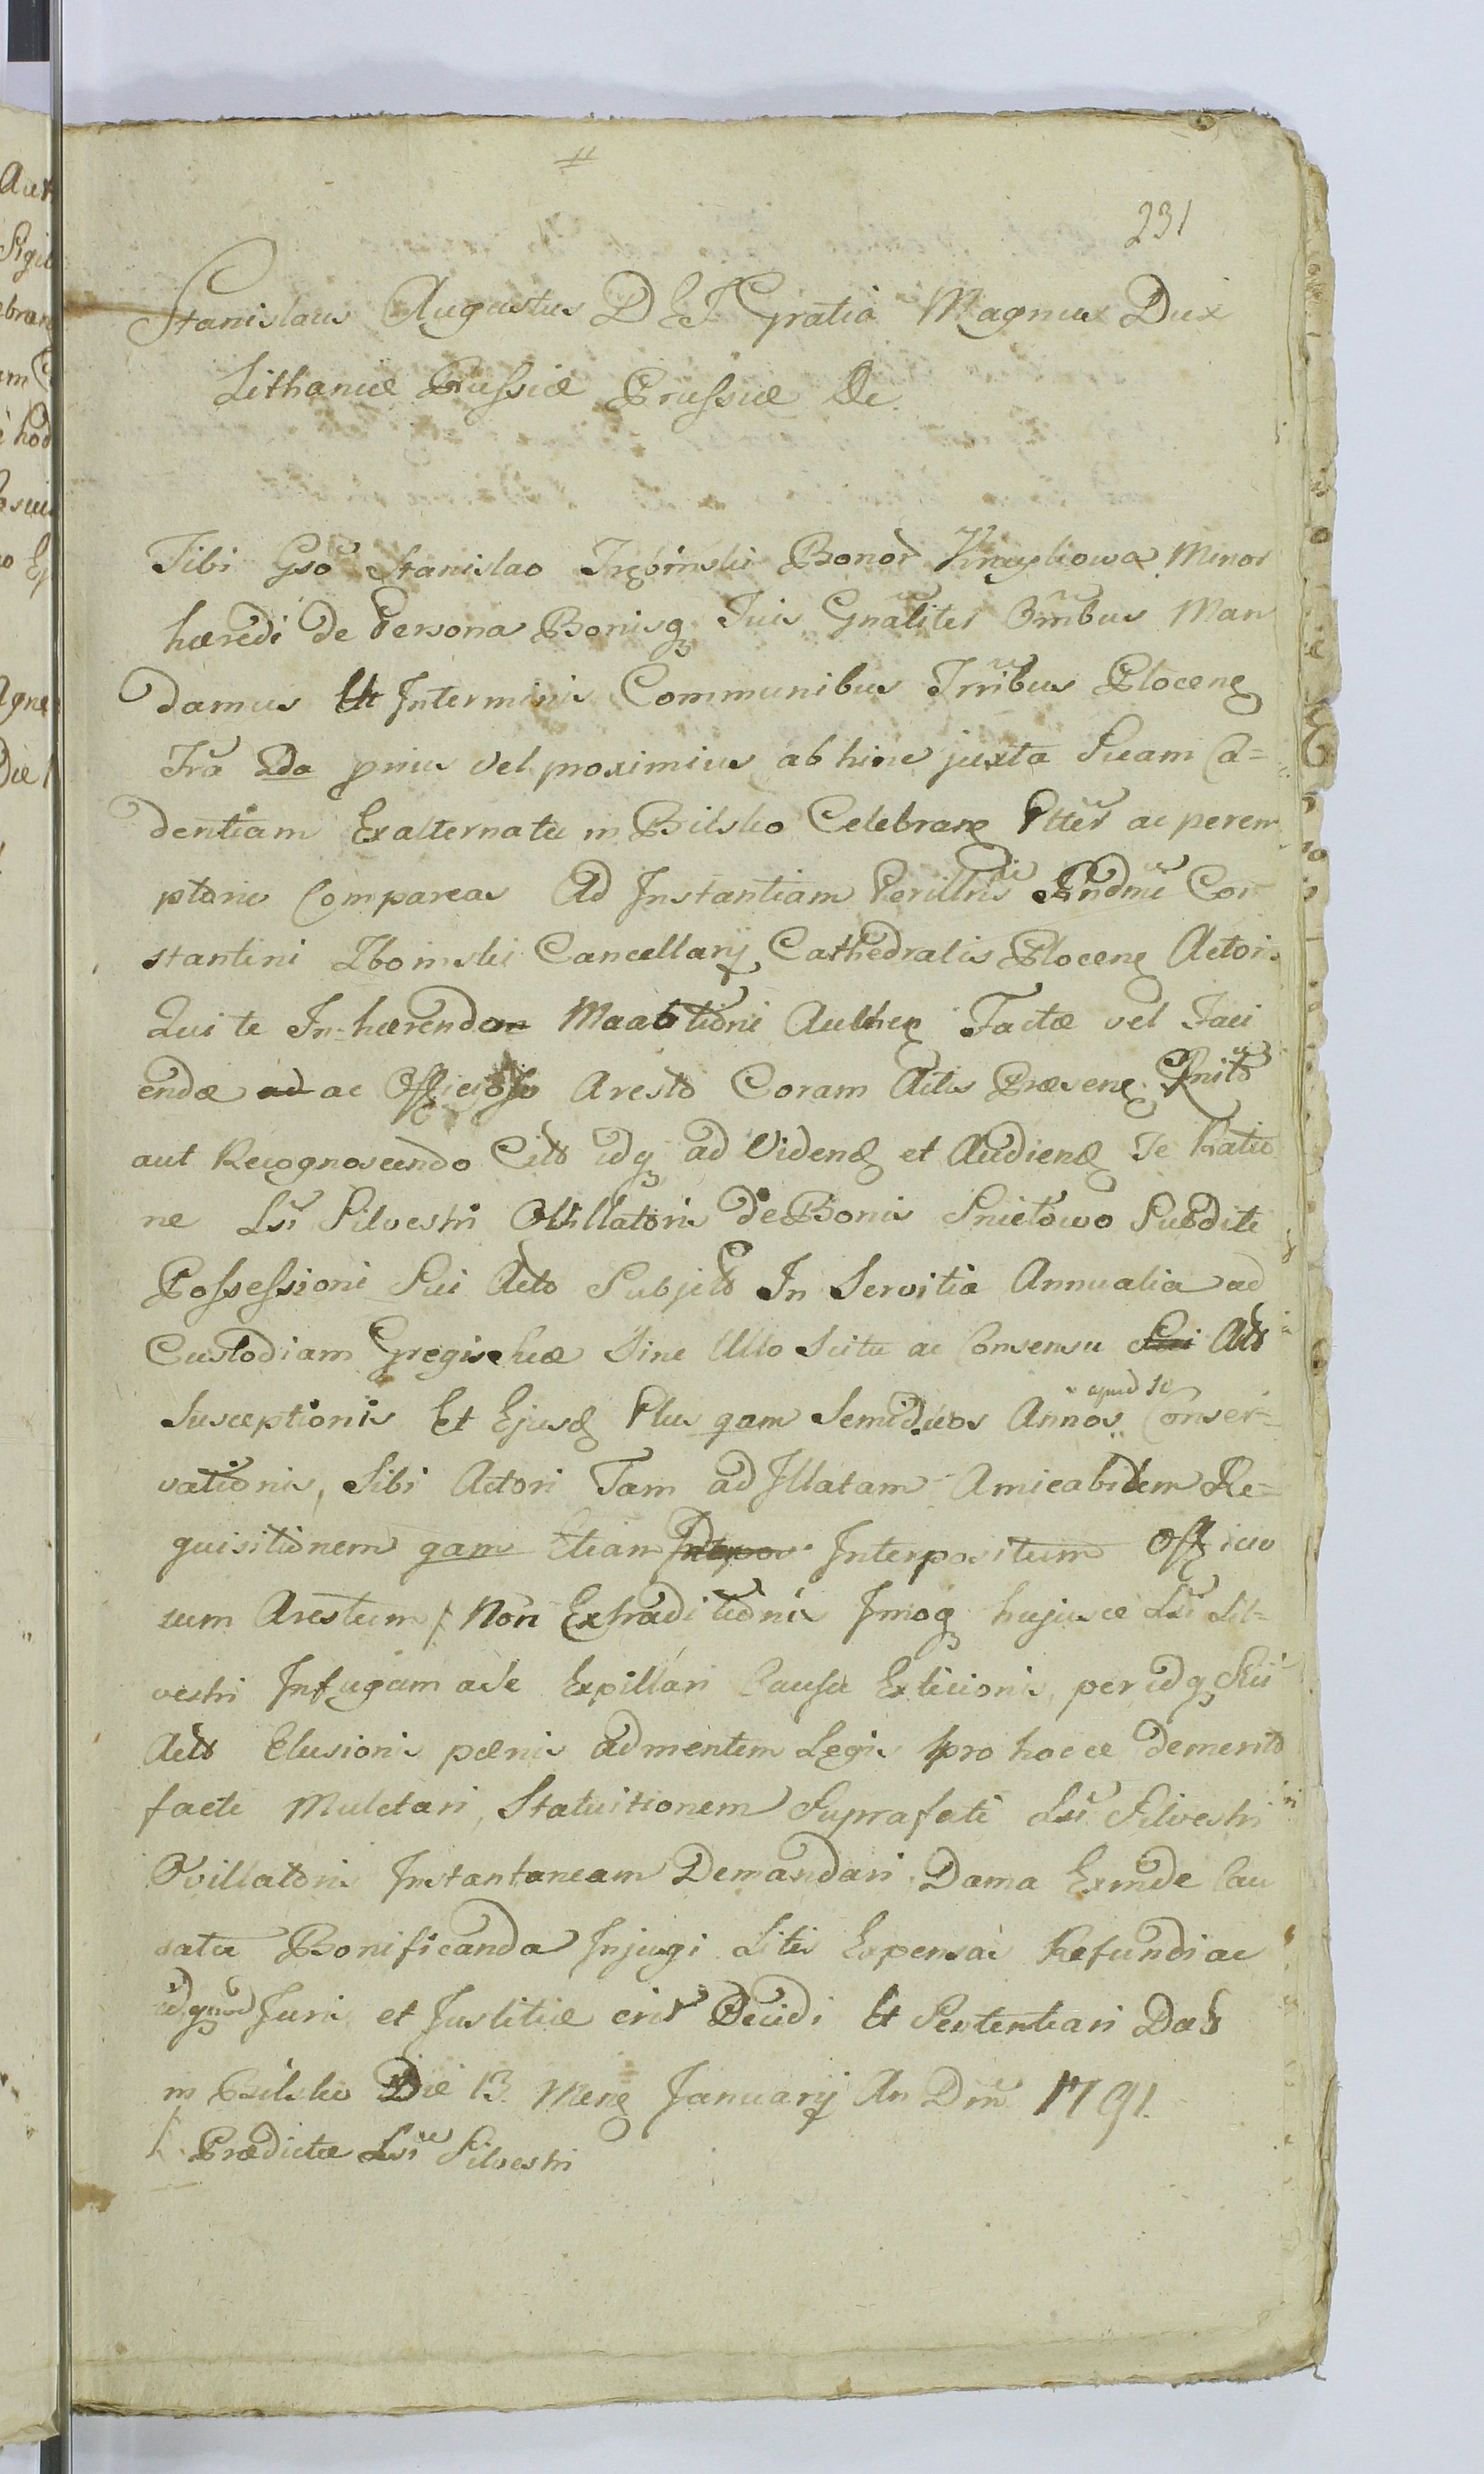 231
Stanislaus Augustus DEI Gratia Magnus Dux
Lithaniæ Russiæ Prussiæ &c.
Tibi Gso Stanislao Trębinski Bonor Kraykowa Minor
hæredi de Persona Bonisq Tuis Gnaliter Omibus Man
damus Ut Interminis Communibus Trribus Plocens
Tra 2da prius vel proximius ab hinc juxta Suam Ca=
dentiam Exalternata in Bilsko Celebran Ptter ac perem
ptorie Compareas Ad Instantiam Perillris Rndmi Con
stantini Zboinski Cancellarij Cathedralis Plocens Actoris
Qui te In hærendo Manitioni Authen Factæ vel Faci
endæ ad ac Officioso Aresto Coram Actis Præsens
aut Recognoscendo Cito idq ad Vidend et Audiend Te Ratio
ne Lsi Silvestri Ovillatoris de Bonis Snietowo Subditi
Possessioni Sui Acto Subjeto In Servitia Annualia ad
Custodiam Gregis Suæ Sine Ullo Scitu ac Consensu Sui Acto
Susceptionis Et Ejusd Plus qam Semiduos Annos apud se Conser=
vationis, Sibi Actori Tam ad Illatam Amicabilem Re=
quisitionem qam Etiam Interpositum Officio
sum Arestum /. Non Extraditionis Imoq hujusce Lsi Sil=
vestri Infugam a Se Expillari Causa Exticionis, per idq Sui
Acto Elusionis pænis admentem Legis pro hocce demerito
facti Mulctari, Statuitionem Suprafati Lsi Silvestri
Ovillatoris Instantaneam Demandari Damna Exinde Cau
sata Bonificanda Injugi Litis Expensas Refundi ac
id quod Juris et Justitiæ erit Decidi Et Sententiari Dat
in Bilsko Die 13 Mens Januarij An Dni 1791.
/. Prædicte Lsi Silvestri